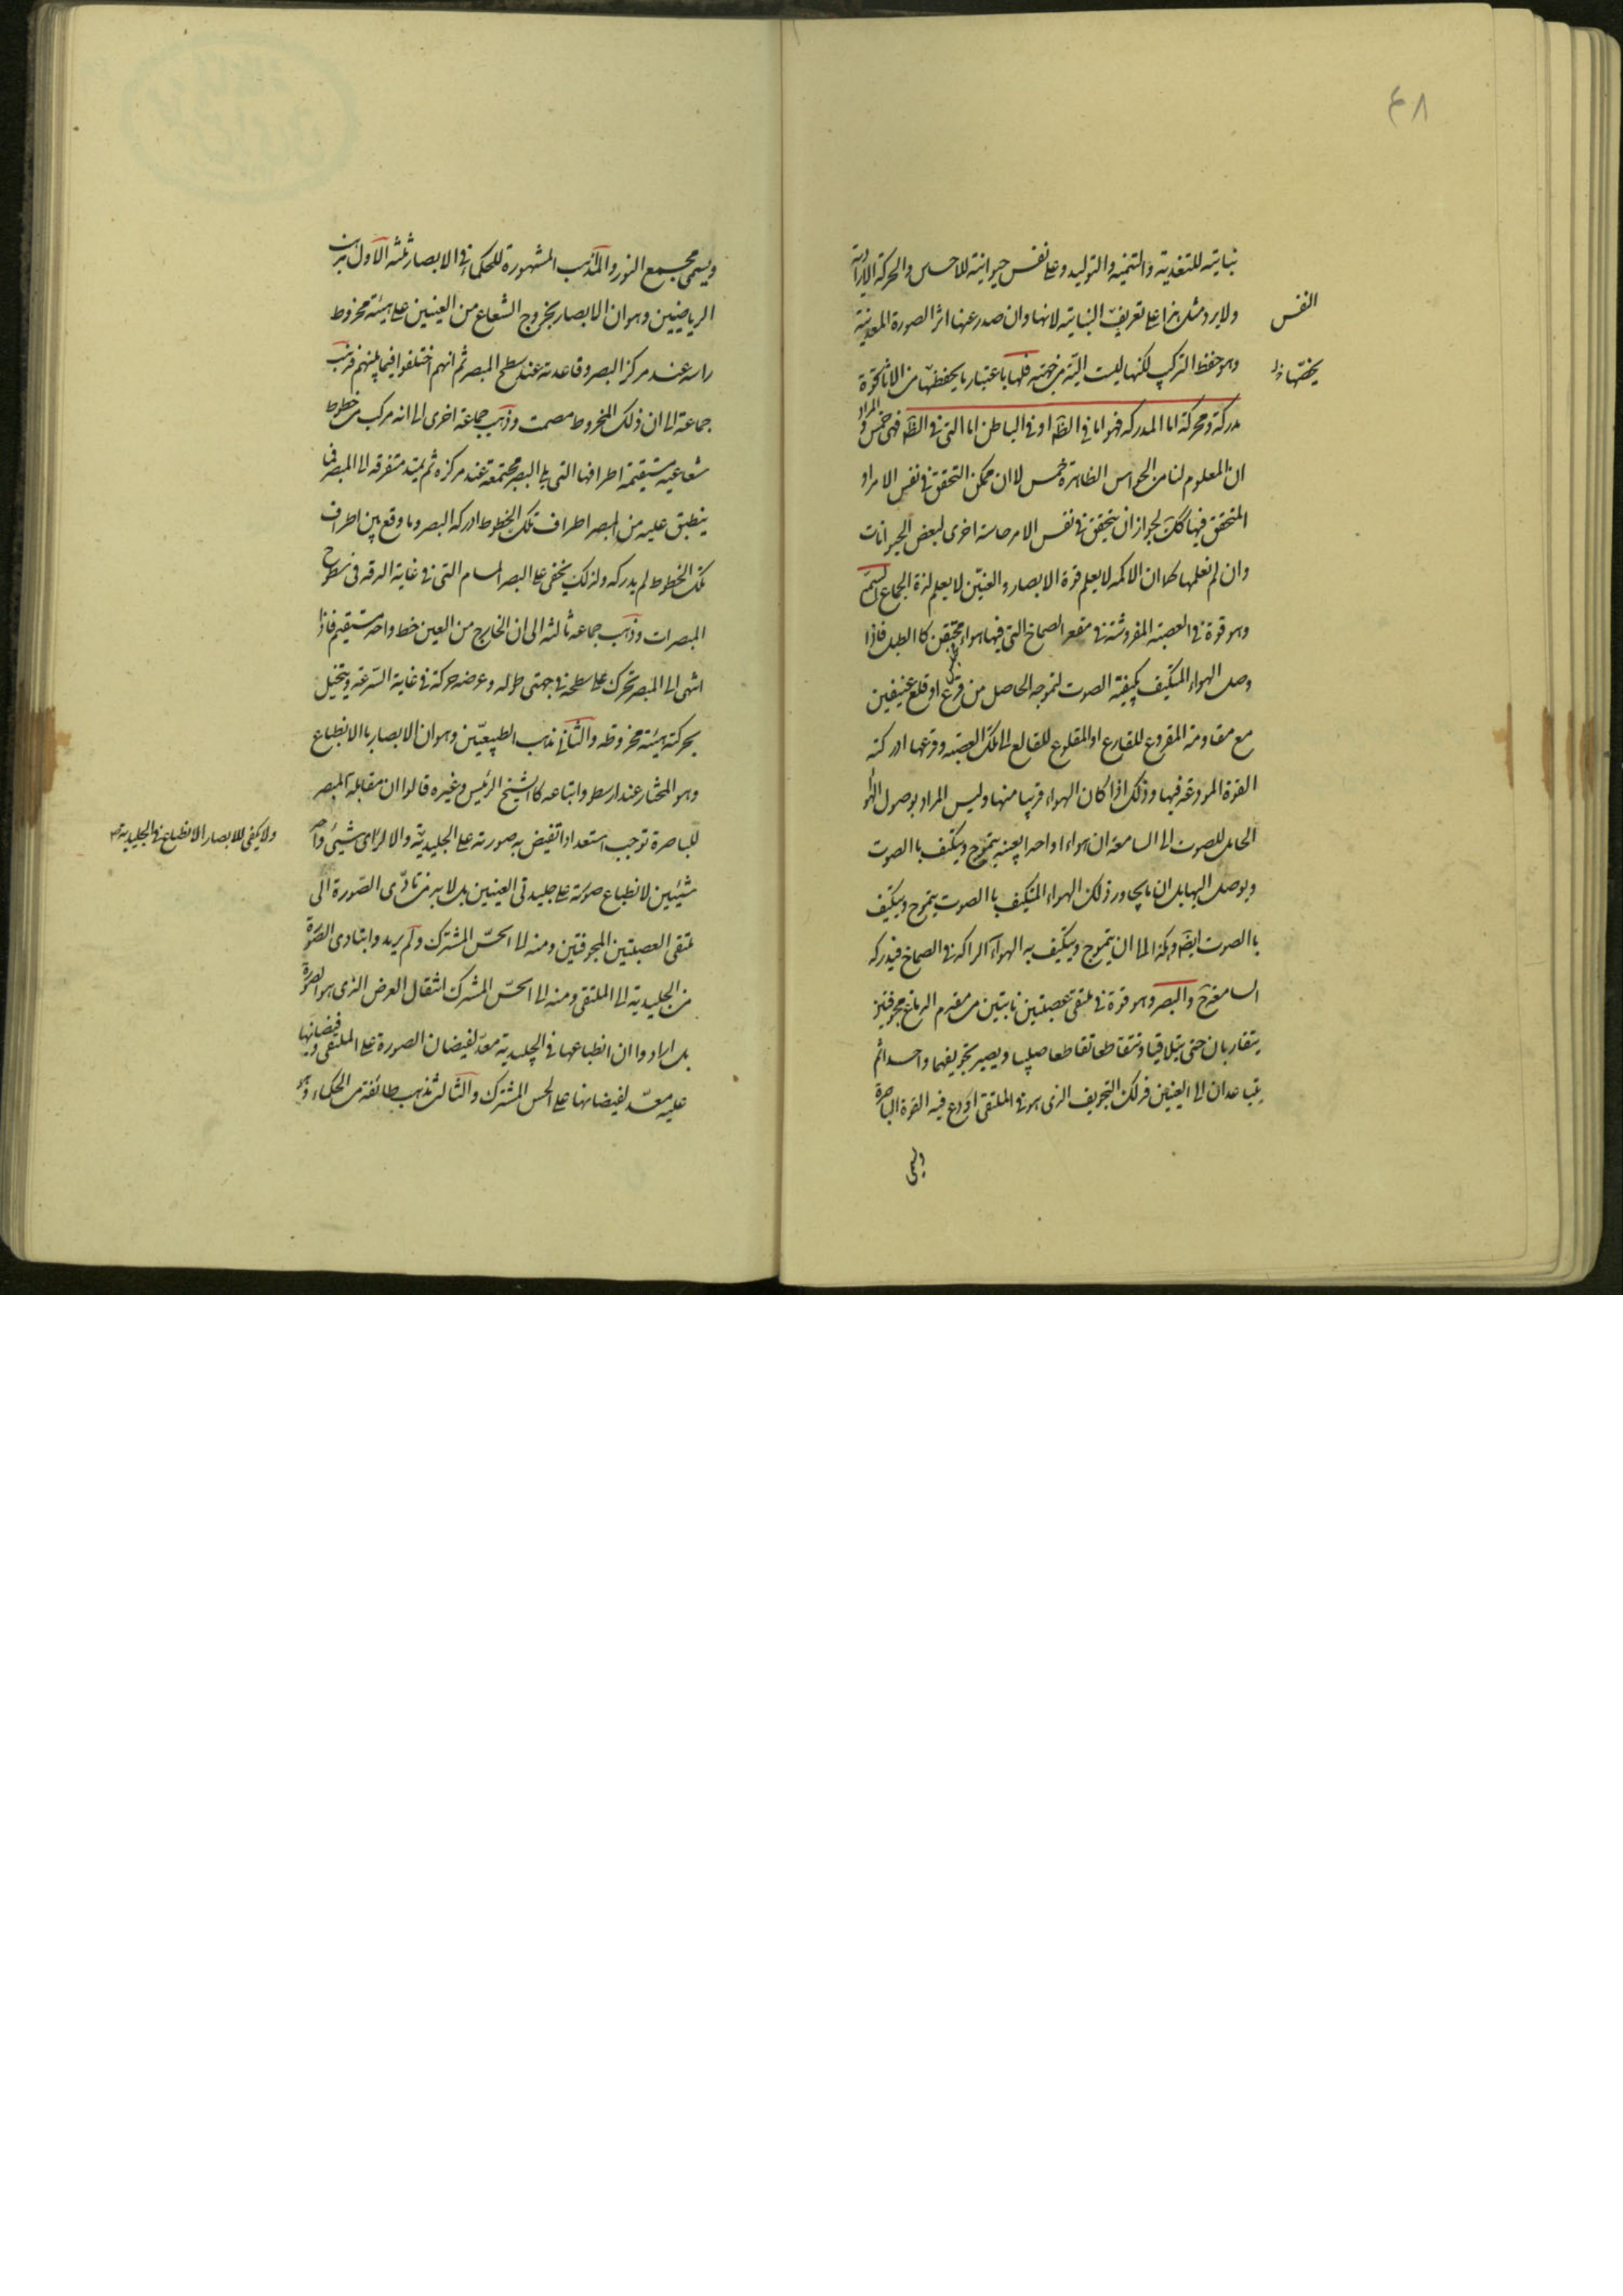 ٤٨
نباتية للتغذية والتنمية والتوليد وعلى نفس حيوانية للاحساس والحركة الارادية
ولا يرد مثل هذا على تعريف النباتية لانها وان صدر عنها اثر الصورة المعدنية
النفس
وهو حفظ التركيب لكنها ليست الية من جهته فلها باعتبار ما يخصها من الاثار قوة
يخصها
مدركة ومحركة اما المدركة فهو اما في الظ او في الباطن اما التي في الظ فهي خمس والمراد
ان المعلوم لنا من الحواس الظاهرة خمس لا ان ممكن التحقق في نفس الامر او
المتحقق فيها كك لجواز ان يتحقق في نفس الامر حاسة اخرى لبعض الحيوانات
وان لم نعلمها كما ان الاكمه لا يعلم قوة الابصار والعنين لا يعلم لذة الجماع السمع
وهو قوة في العصبة المفروشة في مقعر الصماخ التي فيها هواء محتقن كالطبل فاذا
وصل الهواء المتكيف بكيفية الصوت لتموجه الحاصل من قرع او قلع عنيفين
مع مقاومة المقروع للقارع او المقلوع للقالع الى تلك العصبة وقرعها ادركته
القوة المودعة فيها وذلك اذا كان الهواء قريبا منها وليس المراد بوصول الهواء
الحامل للصوت الى السامعة ان هواءا واحدا بعينه يتموج ويتكيف باالصوت
ويوصل اليها بل ان ما يجاور ذلك الهواء المتكيف باالصوت يتموج ويتكيف
باالصوت ايضا وهكذا الى ان يتموج ويتكيف به الهواء الراكد في الصماخ فيدركه
السامعة ح والبصر وهو قوة في ملتقى عصبتين نابتتين من مقدم الدماغ مجوفتين
يتقاربان حتى يتلاقيا ويتقاطعا تقاطعا صليبيا ويصير تجويفهما واحدا ثم
يتباعدان الى العينين فذلك التجويف الذي هو في الملتقى اودع فيه القوة الباصرة
ويسمى
ويسمى مجمع النور والمذاهب المشهورة للحكماء في الابصار ثلثة الاول مذهب
الرياضيين وهو ان الابصار بخروج الشعاع من العينين على هيئة مخروط
راسه عند مركز البصر وقاعدته عند سطح المبصر ثم انهم اختلفوا فيما بينهم فذهب
جماعة الى ان ذلك المخروط مصمت وذهب جماعة اخرى الى انه مركب من خطوط
شعاعية مستقيمة اطرافها التي يلي البصر مجتمعة عند مركزه ثم يمتد متفرقة الى المبصر فما
ينطبق عليه من المبصر اطراف تلك الخطوط ادركه البصر وما وقع بين اطراف
تلك الخطوط لم يدركه ولذلك يخفى على البصر المسام التي في غاية الدقة في سطوح
المبصرات وذهب جماعة ثالثة الى ان الخارج من العين خط واحد مستقيم فاذا
انتهى الى المبصر تحرك على سطحه في جهتى طوله وعرضه حركة في غاية السرعة ويتخيل
بحركته هيئة مخروطه والثاني مذهب الطبيعيين وهو ان الابصار باالانطباع
وهو المختار عند ارسطو واتباعه كاالشيخ الرئيس وغيره قالوا ان مقابلة المبصر
للباصرة توجب استعدادا تفيض به صورته على الجليدية والا لراى شيئ واحد
ولا يكفى للابصار الانطباع في الجليدية
شيئين لانطباع صورته على جليدتى العينين بل لابد من تادى الصورة الى
ملتقى العصبتين المجوفتين ومنه الى الحس المشترك ولم يريدوا بتادى الصورة
من الجليدية الى الملتقى ومنه الى الحس المشترك انتقال العرض الذي هو الصورة
بل ارادوا ان انطباعها في الجليدية معد لفيضان الصورة على الملتقى وفيضانها
عليه معد لفيضانها على الحس المشترك والثالث مذهب طائفة من الحكماء